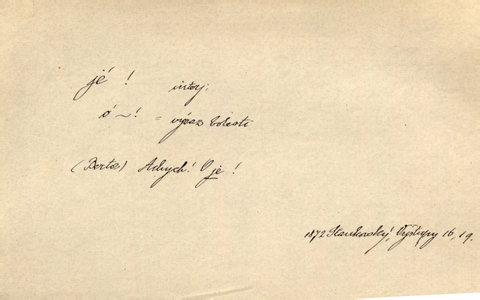 jé! interj.
ó ~! = výraz bolesti
(Berta) Achych! O je!
1872 Stankovský, Výstupy 16, 19.